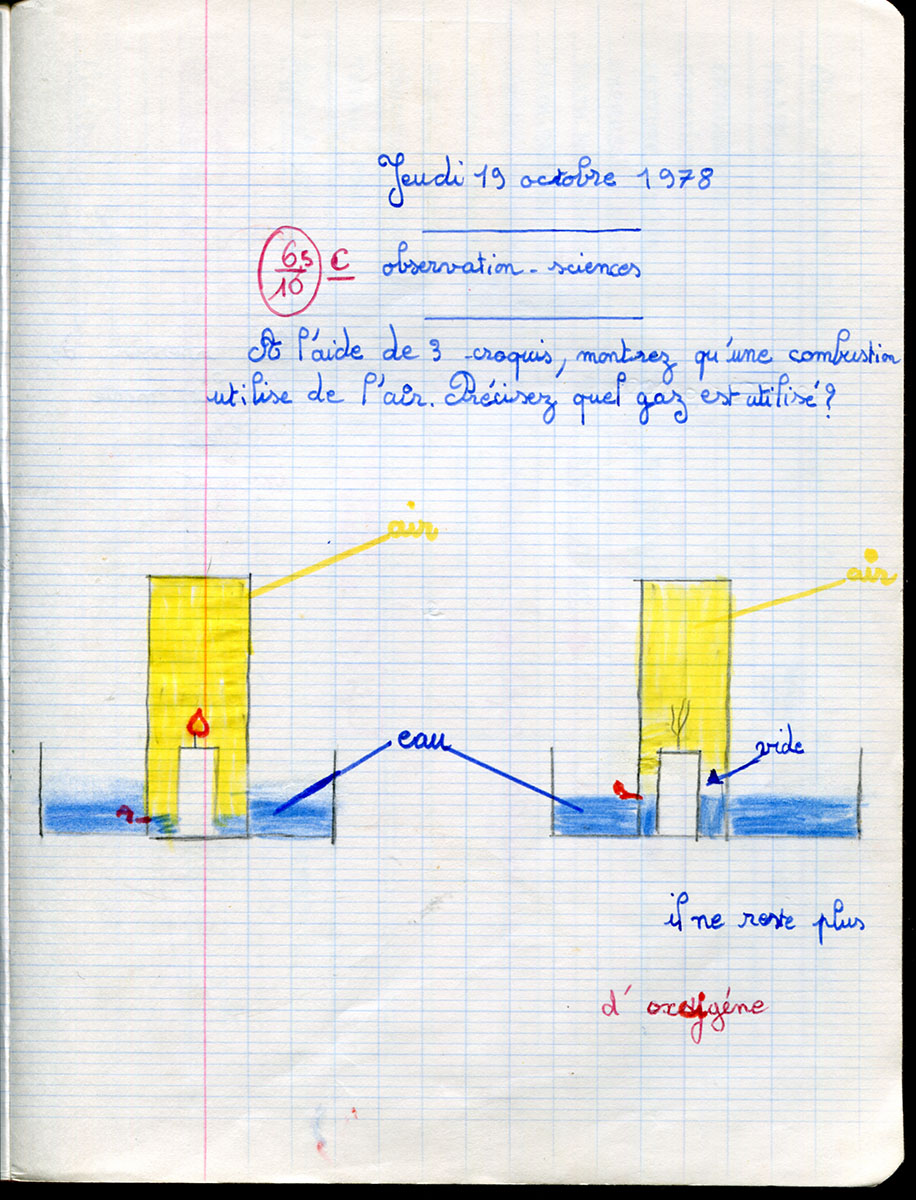 Jeudi 19 octobre 1978
6,5
10
C
observation - sciences
A l'aide de 3 croquis, montrez qu'une combustion
utilise de l'air. Précisez quel gaz est utilisé?
air
air
eau
vide
il ne reste plus
d'oxygéne